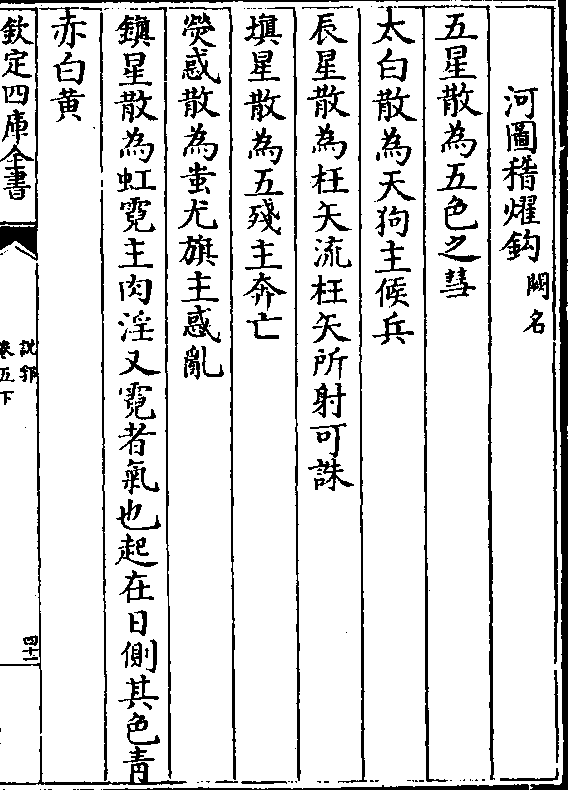 河圖稽燿鈎 闕名
五星散為五色之彗
太白散為天狗主候兵
辰星散為枉矢流枉矢所射可誅
填星散為五殘主奔亡
熒惑散為蚩尤旗主惑亂
鎮星散為虹霓主內淫又霓者氣也起在日側其色青
赤白黃
欽定四庫全書
說郛
卷五下
四十一